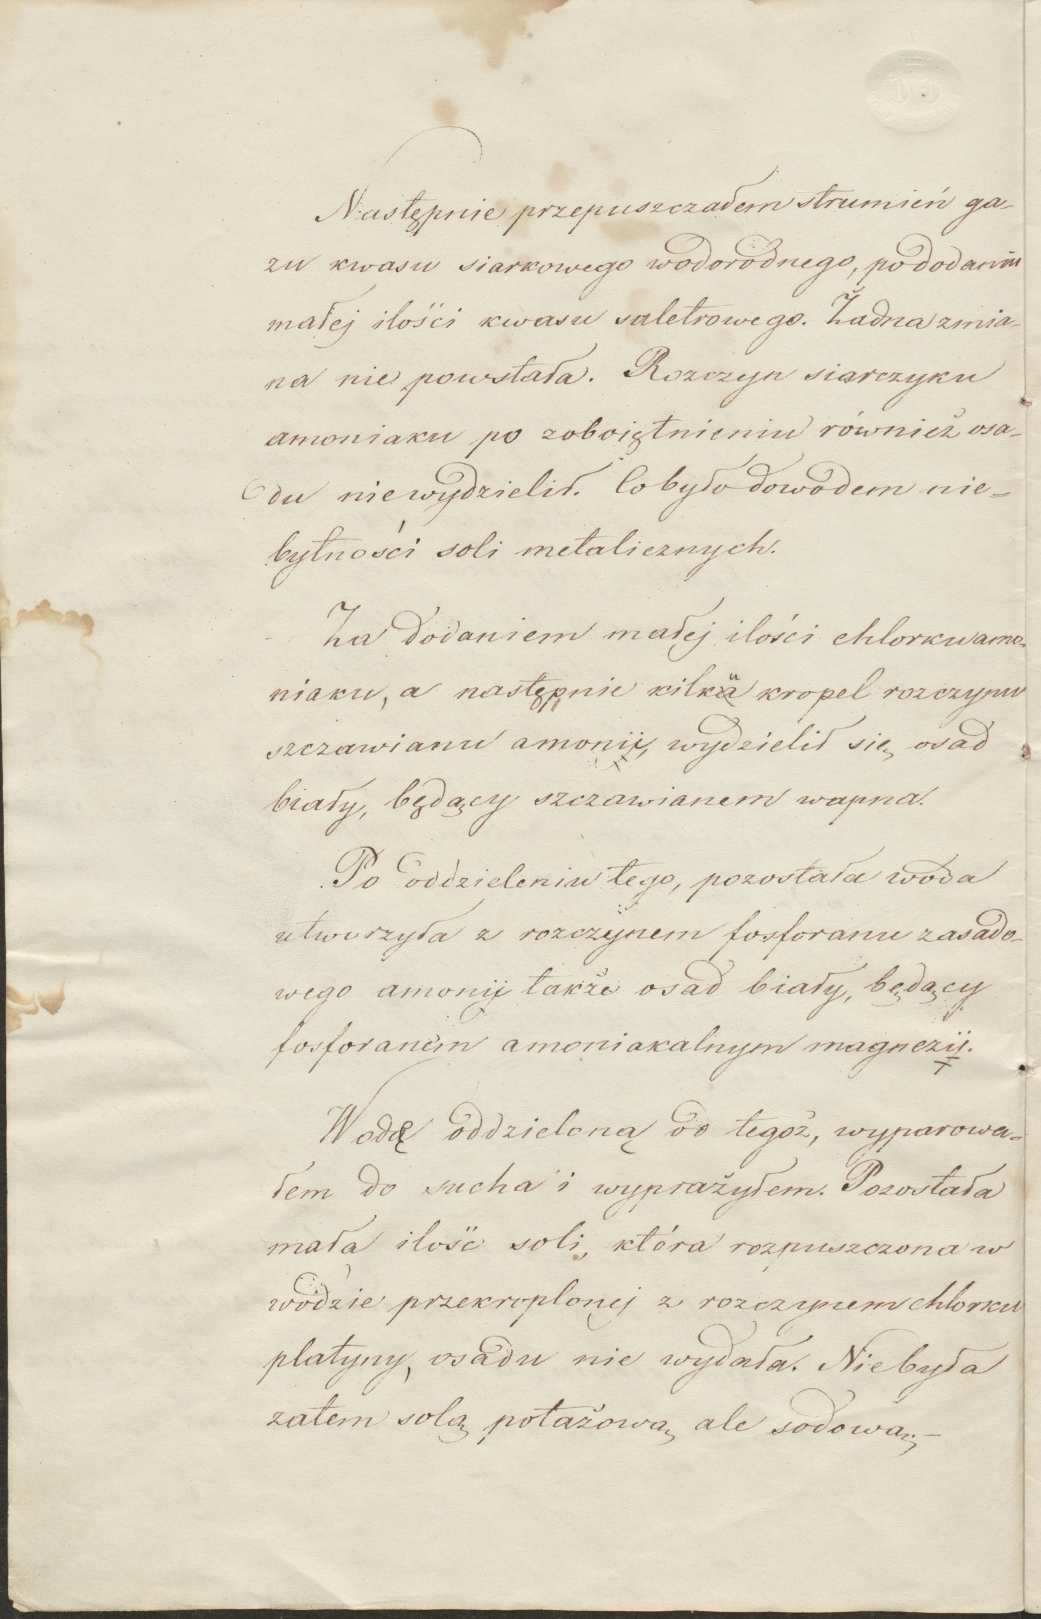 Następnie przepuszczałem strumień ga-
zu kwasu siarkowego wodorodnego, po dodaniu
małej ilości kwasu saletrowego. Żadna zmia-
na nie powstała. Rozczyn siarczyku
amoniaku po zobojętnieniu również osa-
du niewydzielił. Co było dowodem nie-
bytności soli metalicznych.
Za dodaniem małej ilości chlorku amo-
niaku, a następnie kilka kropel rozczynu
szczawianu amonii, wydzielił się osad
biały, będący szczawianem wapna.
Po oddzieleniu tego, pozostała woda
utworzyła z rozczynem fosforanu zasado-
wego amonii także osad biały, będący
fosforanem amoniakalnym magnezii.
Wodę oddzieloną od tegoż, wyparowa-
łem do sucha i wyprażyłem. Pozostała
mała ilość soli, która rozpuszczona w
wodzie przekroplonej z rozczynem chlorku
platyny, osadu nie wydała. Nie była
zatem solą potażową ale sodową.-